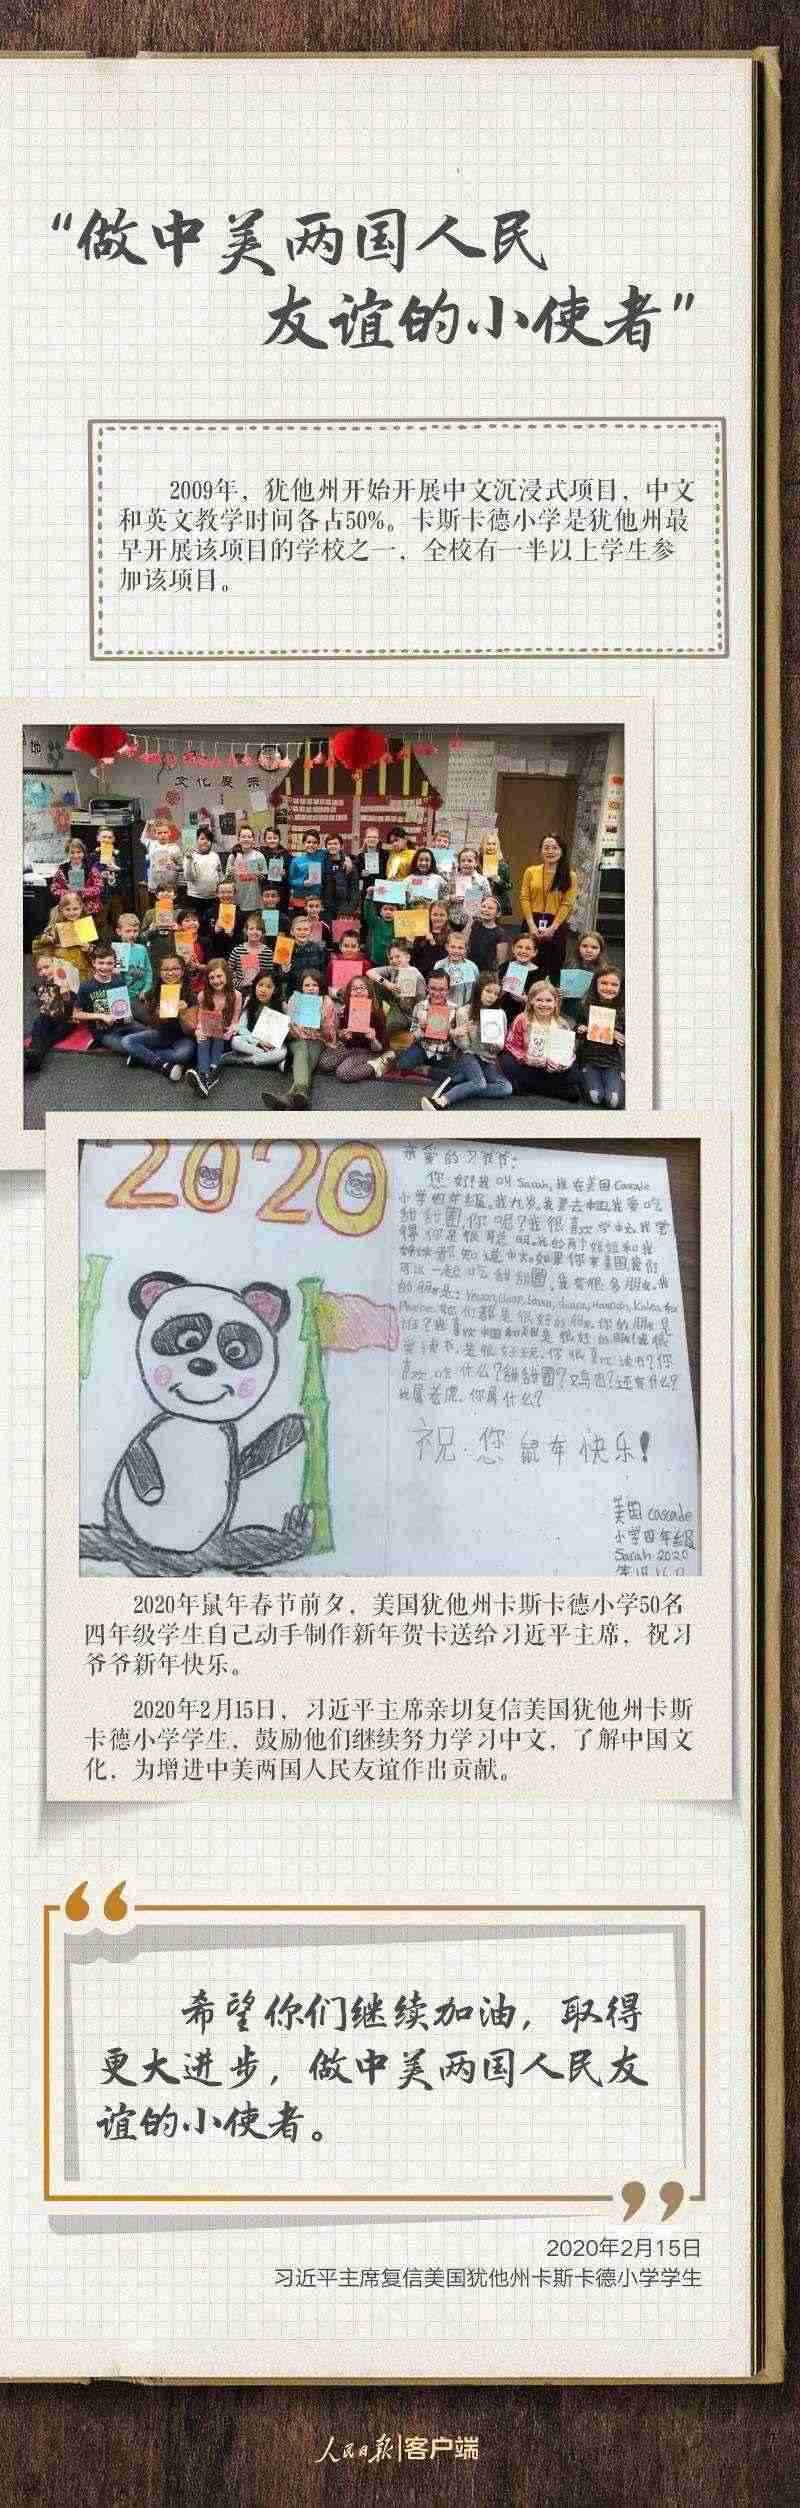 “做中美两国人民
友谊的小使者”
2009年，犹他州开始开展中文沉浸式项目，中文
和英文教学时间各占50%。卡斯卡德小学是犹他州最
早开展该项目的学校之一，全校有一半以上学生参
加该项目。
文化展示
2020
亲爱的习爷爷：
你好!我叫Sarah,我在美国Cascade
小学四年级。我九岁。我要去中国。我爱吃
甜甜圈,你呢?我很喜欢学中文。我觉
可以一起吃甜甜圈。我有很多朋友。我
喜欢吃什么?甜甜圈?鸡肉?还有什么?
我属老虎,你属什么?
祝您鼠年快乐!
美国cascade
小学四年级
Sarah 2020
2020年鼠年春节前夕，美国犹他州卡斯卡德小学50名
四年级学生自己动手制作新年贺卡送给习近平主席，祝习
爷爷新年快乐。
2020年2月15日，习近平主席亲切复信美国犹他州卡斯
卡德小学学生，鼓励他们继续努力学习中文，了解中国文
化，为增进中美两国人民友谊作出贡献。
希望你们继续加油，取得
更大进步，做中美两国人民友
谊的小使者。
2020年2月15日
习近平主席复信美国犹他州卡斯卡德小学学生
人民日报|客户端